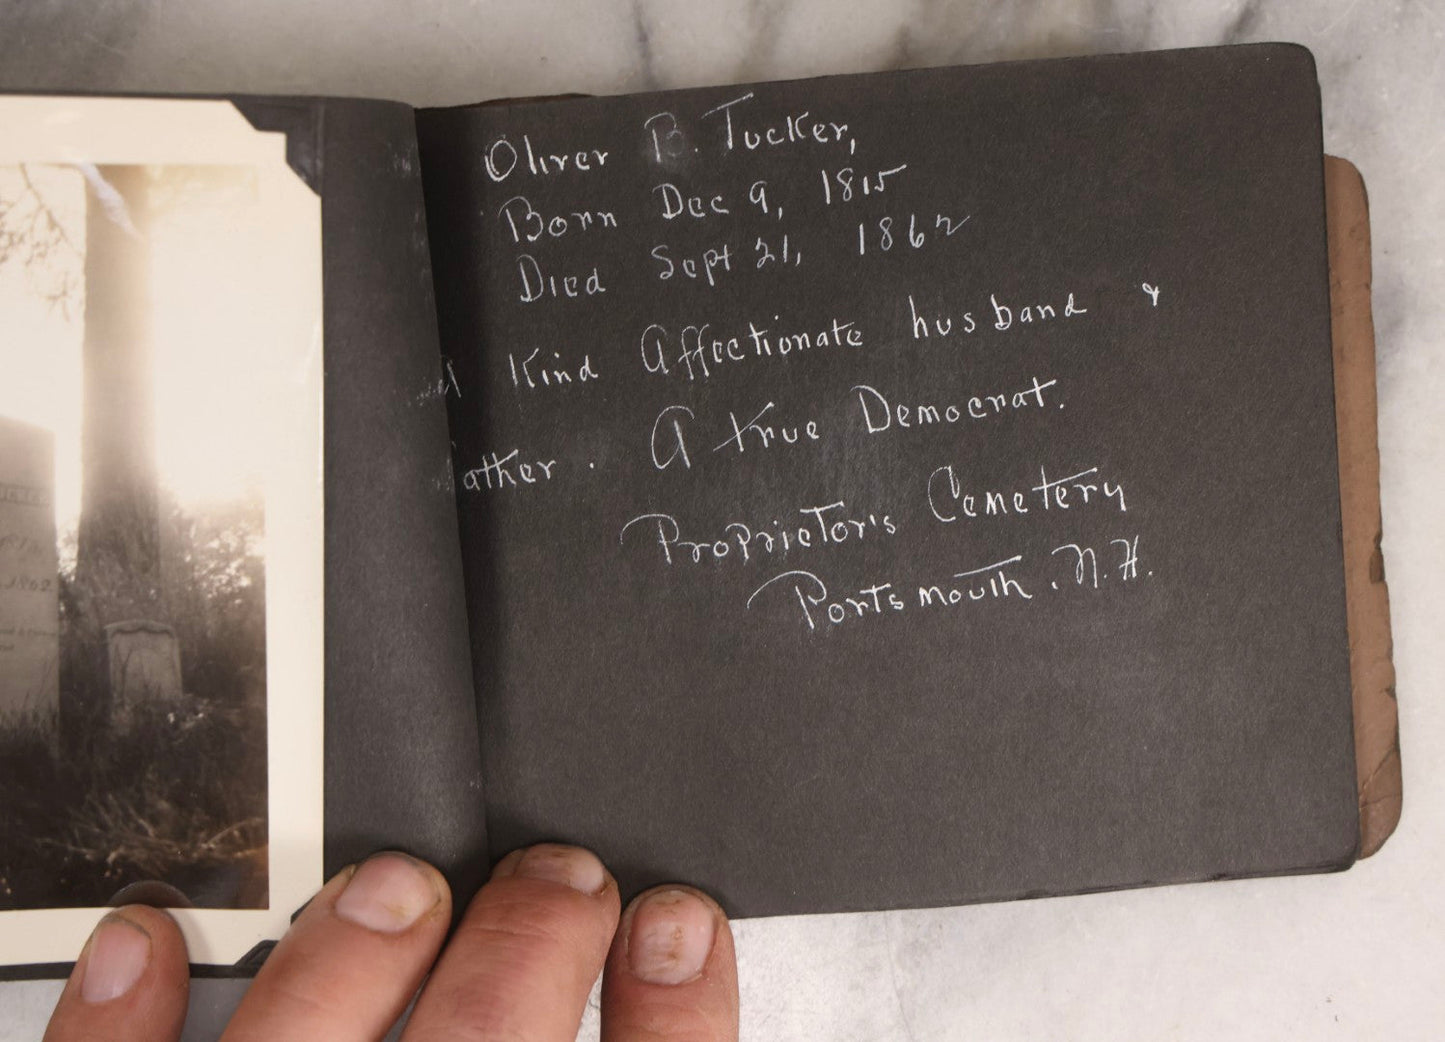 Oliver B. Tucker,
Born Dec 9, 1815
Died Sept 21, 1862
A Kind Affectionate husband &
Father. A true Democrat.
Proprietor's Cemetery
Portsmouth. N.H.